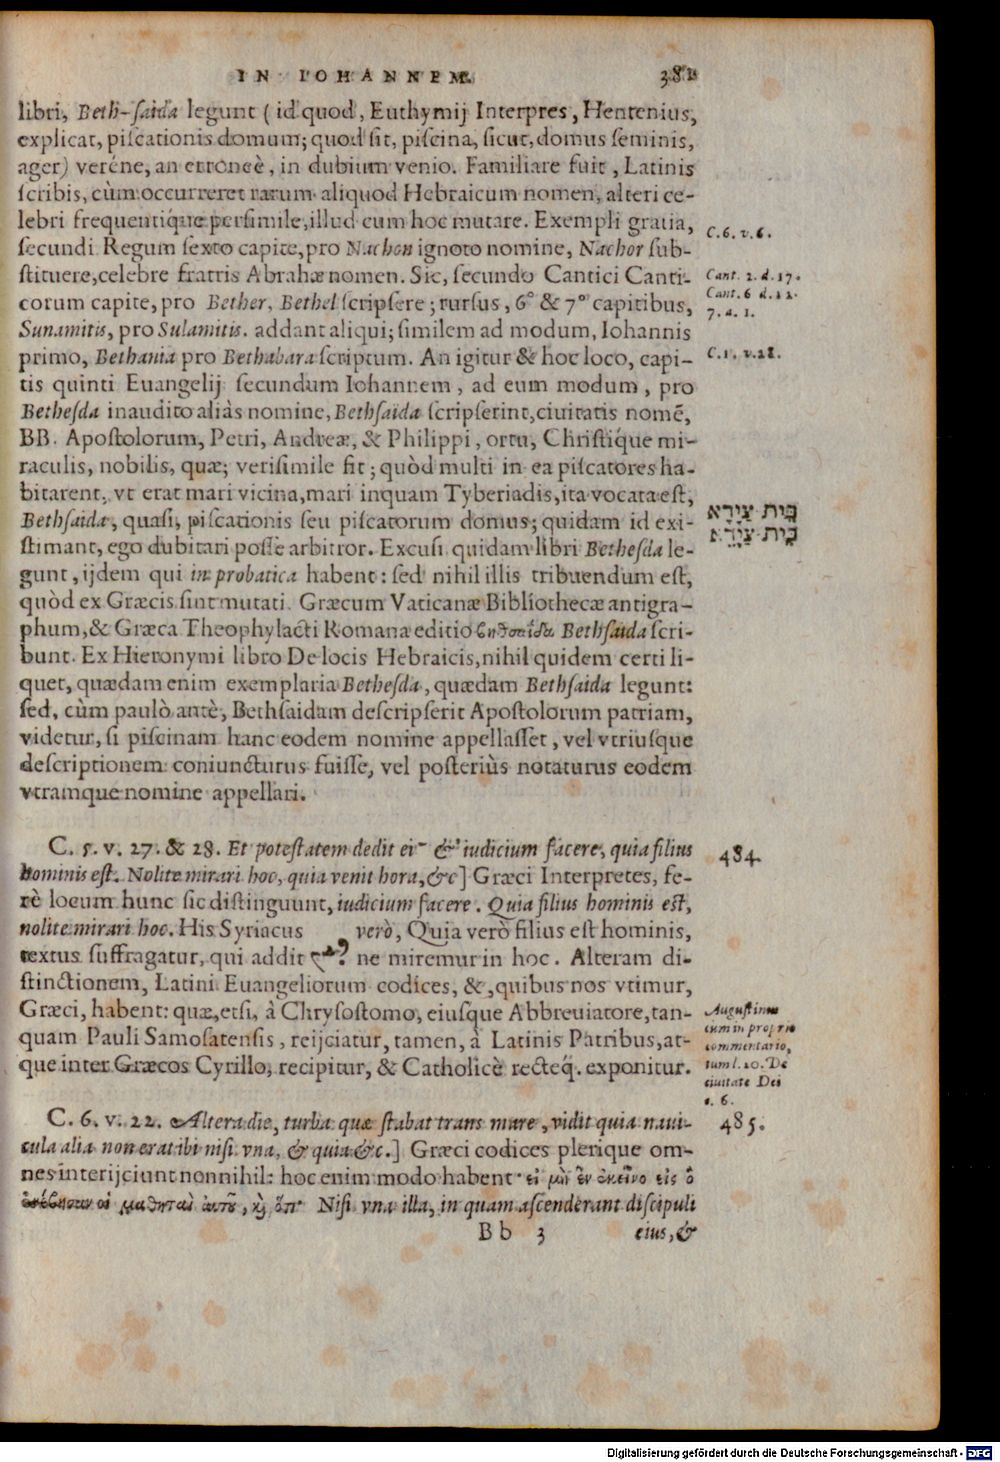 IN IOHANNEM. 381
libri, Beth-ſaida legunt ( id quod, Euthymij Interpres, Hentenius,
explicat, piſcationis domum; quod ſit, piſcina, ſicut, domus ſeminis,
ager) veréne, an erroneè, in dubium venio. Familiare fuit, Latinis
ſcribis, cùm occurreret rarum aliquod Hebraicum nomen, alteri ce-
lebri frequentiq́ue perſimile, illud cum hoc mutare. Exempli gratia,
ſecundi Regum ſexto capite, pro Nachon ignoto nomine, Nachor ſub-
ſtituere, celebre fratris Abrahæ nomen. Sic, ſecundo Cantici Canti-
corum capite, pro Bether, Bethel ſcripſere; rurſus, 6° & 7° capitibus,
Sunamitis, pro Sulamitis. addant aliqui; ſimilem ad modum, Iohannis
primo, Bethania pro Bethabara ſcriptum. An igitur & hoc loco, capi-
tis quinti Euangelij ſecundum Iohannem, ad eum modum, pro
Betheſda inaudito aliàs nomine, Bethſaida ſcripſerint, ciuitatis nomē,
BB. Apoſtolorum, Petri, Andreæ, & Philippi, ortu, Chriſtiq́ue mi-
raculis, nobilis, quæ; veriſimile ſit; quòd multi in ea piſcatores ha-
bitarent, vt erat mari vicina, mari inquam Tyberiadis, ita vocata eſt,
Bethſaida, quaſi, piſcationis ſeu piſcatorum domus; quidam id exi-
ſtimant, ego dubitari poſſe arbitror. Excuſi quidam libri Betheſda le-
gunt, ijdem qui in probatica habent: ſed nihil illis tribuendum eſt,
quòd ex Græcis ſint mutati. Græcum Vaticanæ Bibliothecæ antigra-
phum, & Græca Theophylacti Romana editio βηθσαϊδα Bethſaida ſcri-
bunt. Ex Hieronymi libro De locis Hebraicis, nihil quidem certi li-
quet, quædam enim exemplaria Betheſda, quædam Bethſaida legunt:
ſed, cùm paulò antè, Bethſaidam deſcripſerit Apoſtolorum patriam,
videtur, ſi piſcinam hanc eodem nomine appellaſſet, vel vtriuſque
deſcriptionem coniuncturus fuiſſe, vel poſteriùs notaturus eodem
vtramque nomine appellari.
C. 6. v. 6.
Cant. 2. d. 17.
Cant. 6 d. 12.
7. a. 1.
C. 1. v. 28.
בֵּית צַיְדָא
בֵית צַיָּדָא
C. 5. v. 27. & 28. Et poteſtatem dedit ei & iudicium facere, quia filius
hominis eſt. Nolite mirari hoc, quia venit hora, &c] Græci Interpretes, fe-
rè locum hunc ſic diſtinguunt, iudicium facere. Quia filius hominis eſt,
nolite mirari hoc. His Syriacus verò, Quia verò filius eſt hominis,
textus ſuffragatur, qui addit ne miremur in hoc. Alteram di-
ſtinctionem, Latini Euangeliorum codices, &, quibus nos vtimur,
Græci, habent: quæ, etſi, à Chryſoſtomo, eiuſque Abbreuiatore, tan-
quam Pauli Samoſatenſis, reijciatur, tamen, à Latinis Patribus, at-
que inter Græcos Cyrillo, recipitur, & Catholicè recteq́. exponitur.
484.
Auguſtinus
cum in proprio
commentario,
tum l. 20. De
ciuitate Dei
c. 6.
C. 6. v. 22. Altera die, turba quæ ſtabat trans mare, vidit quia naui-
cula alia non erat ibi niſi vna, & quia &c.] Græci codices plerique om-
nes interijciunt nonnihil: hoc enim modo habent· εἰ μὴ ἓν ἐκεῖνο εἰς ὃ
ἀνέβησαν οἱ μαθηταὶ αὐτοῦ, κỳ ὅτι· Niſi vna illa, in quam aſcenderant diſcipuli
485.
Bb 3 eius, &
Digitalisierung gefördert durch die Deutsche Forschungsgemeinschaft - DFG